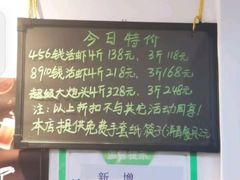 今日特价
456钱活虾4斤138元、3斤118元
8910钱活虾4斤218元、3斤168元
超级大炮头4斤328元、3斤268元
注：以上折扣不与其他活动同享！
本店提供免费手套纸筷子
新增